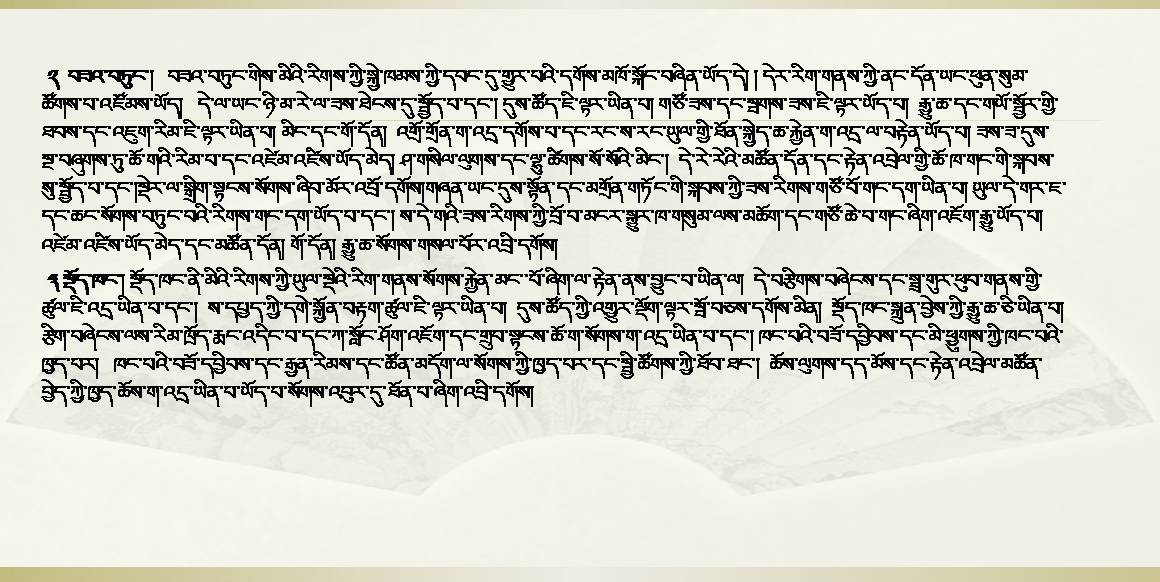 ༢ བཟའ་བཏུང་། བཟའ་བཏུང་གིས་མིའི་རིགས་ཀྱི་སྐྱེ་ཁམས་ཀྱི་དབང་དུ་གྱུར་པའི་དགོས་མཁོ་སྐོང་བཞིན་ཡོད་དེ། ། དེར་རིག་གནས་ཀྱི་ནང་དོན་ཡང་ཕུན་སུམ་
ཚོགས་པ་འཛོམས་ཡོད། དེ་ལ་ཡང་ཉི་མ་རེ་ལ་ཟས་ཐེངས་དུ་སྤྱོད་པ་དང་། དུས་ཚོད་ཇི་ལྟར་ཡིན་པ། གཙོ་ཟས་དང་སྦྲགས་ཟས་ཇི་ལྟར་ཡོད་པ། རྒྱུ་ཆ་དང་གཡོ་སྦྱོར་གྱི་
ཐབས་དང་འཇུག་རིམ་ཇི་ལྟར་ཡིན་པ། མིང་དང་གོ་དོན། འགྲོ་གྲོན་ག་འདྲ་དགོས་པ་དང་རང་ས་རང་ཡུལ་གྱི་ཐོན་སྐྱེད་ཆ་རྐྱེན་ག་འདྲ་ལ་བརྟེན་ཡོད་པ། ཟས་ཟ་དུས་
སྔ་བཞུགས་ཏུ་ཆོ་གའི་རིམ་པ་དང་འཛེམ་འཛིས་ཡོད་མེད། ཤ་གསིལ་ལུགས་དང་ལྷུ་ཚིགས་སོ་སོའི་མིང་། དེ་རེ་རེའི་མཚོན་དོན་དང་རྟེན་འབྲེལ་གྱི་ཆོ་ཁ་གང་གི་སྐབས་
སུ་སྤྱོད་པ་དང་།སྡེར་ལ་སྒྲིག་སྟངས་སོགས་ཞིབ་མོར་འབྲོ་དགོས།གཞན་ཡང་དུས་སྟོན་དང་མགྲོན་གཏོང་གི་སྐབས་ཀྱི་ཟས་རིགས་གཙོ་བོ་གང་དག་ཡིན་པ། ཡུལ་དེ་གར་ཇ་
དང་ཆང་སོགས་བཏུང་བའི་རིགས་གང་དག་ཡོད་པ་དང་། ས་དེ་གའི་ཟས་རིགས་ཀྱི་བྲོ་བ་མངར་སྐྱུར་ཁ་གསུམ་ལས་མཆོག་དང་གཙོ་ཆེ་བ་གང་ཞིག་འཛོག་རྒྱུ་ཡོད་པ།
འཛེམ་འཛིས་ཡོད་མེད་དང་མཚོན་དོན། གོ་དོན། རྒྱུ་ཆ་སོགས་གསལ་པོར་འབྲི་དགོས།
༣ སྡོད་ཁང་། སྡོད་ཁང་ནི་མིའི་རིགས་ཀྱི་ཡུལ་སྡེའི་རིག་གནས་སོགས་རྐྱེན་མང་ པོ་ཞིག་ལ་རྟེན་ནས་བྱུང་བ་ཡིན་ལ། དེ་བརྩིགས་བཞེངས་དང་སྦྲ་གུར་ཕུབ་གནས་ཀྱི་
ཚུལ་ཇི་འདྲ་ཡིན་པ་དང་། ས་དཔྱད་ཀྱི་དགེ་སྐྱོན་བརྟག་ཚུལ་ཇི་ལྟར་ཡིན་པ། དུས་ཚོད་ཀྱི་འགྱུར་ལྡོག་ལྟར་སྤོ་བཅས་དགོས་མིན། སྡོད་ཁང་སྐྲུན་བྱེས་ཀྱི་རྒྱུ་ཆ་ཅི་ཡིན་པ།
རྩིག་བཞེངས་ལས་རིམ་ཁྲོད་རྨང་འདིང་བ་དང་ཀ་སློང་ཤོག་འཛོག་དང་གྲུབ་སྟངས་ཆོ་ག་སོགས་ག་འདྲ་ཡིན་པ་དང་། ཁང་པའི་བཟོ་དབྱིབས་དང་མི་ཕྱུགས་ཀྱི་ཁང་པའི་
ཁྱད་པར། ཁང་པའི་བཟོ་དབྱིབས་དང་རྒྱན་རིམས་དང་ཚོན་མདོག་ལ་སོགས་ཀྱི་ཁྱད་པར་དང་སྤྱི་ཚོགས་ཀྱི་ཐོབ་ཐང་། ཆོས་ལུགས་དད་མོས་དང་རྟེན་འབྲེལ་མཚོན་
བྱེད་ཀྱི་ཁྱད་ཆོས་ག་འདྲ་ཡིན་པ་ཡོད་པ་སོགས་འབུར་དུ་ཐོན་པ་ཞིག་འབྲི་དགོས།